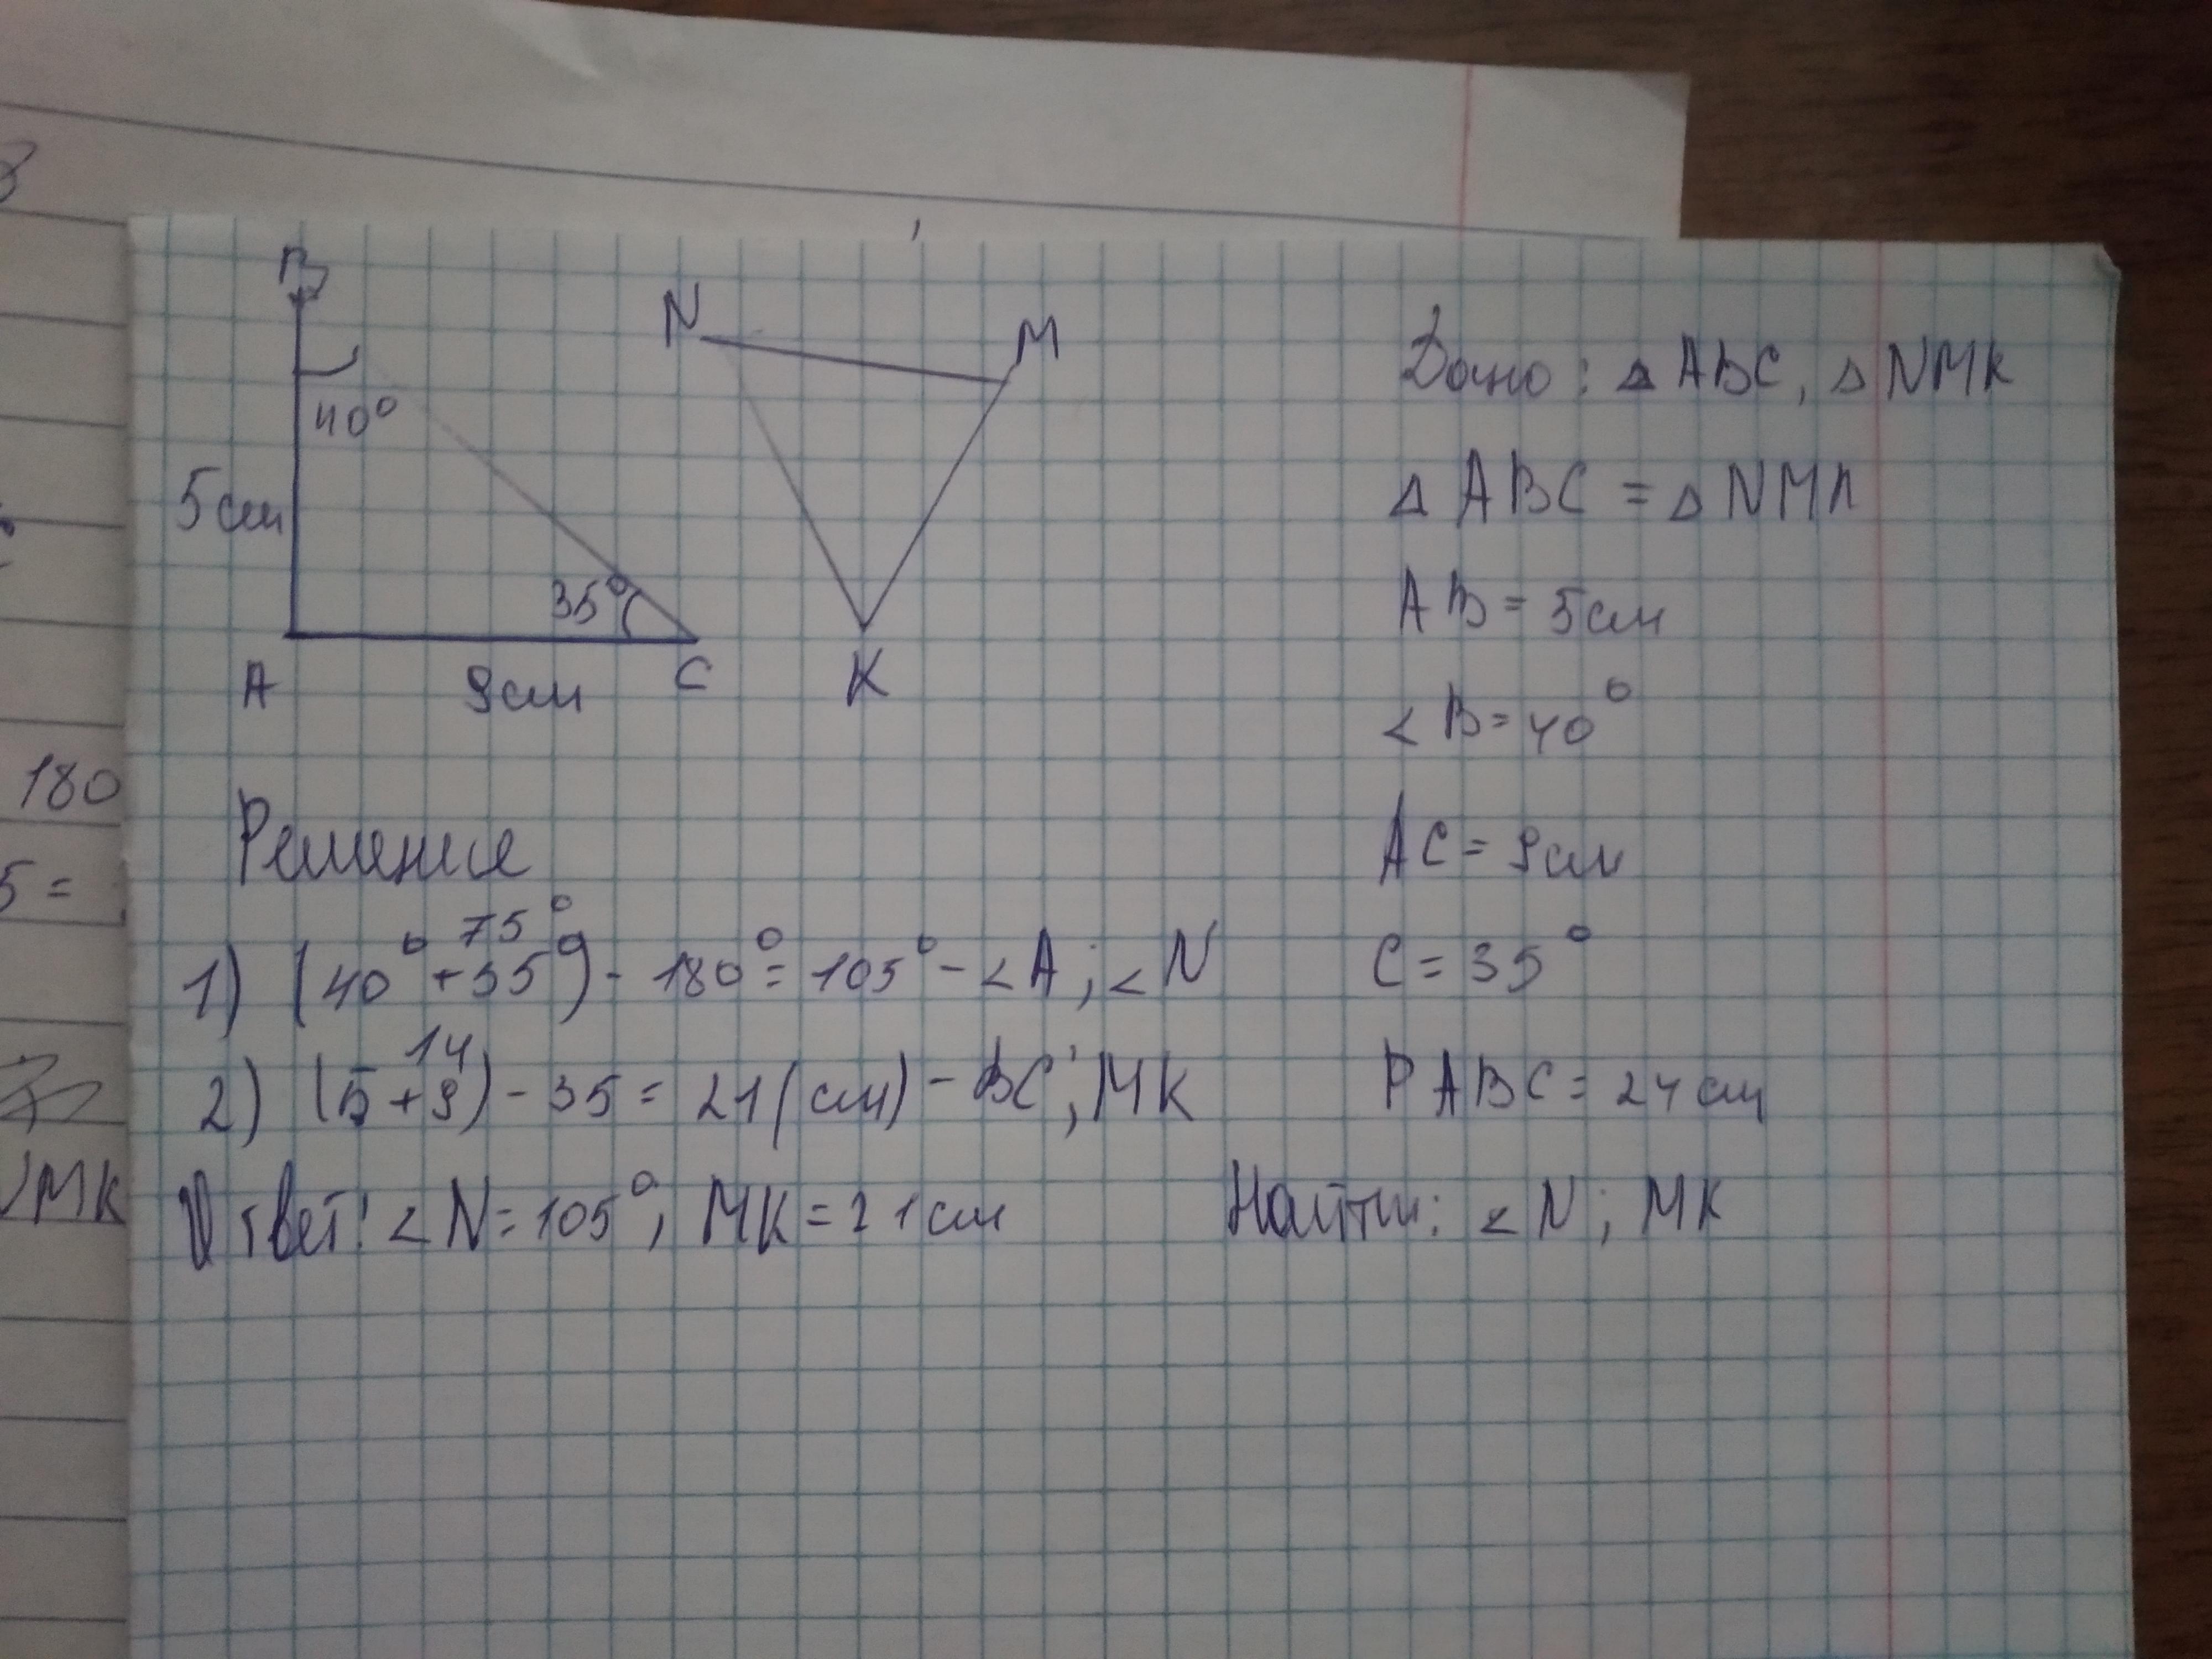 B
40°
5см
35°
A
9см
C
N
M
K
Дано: △ ABC, △ NMK
△ ABC = △ NMK
AB = 5см
< B = 40°
AC = 9см
C = 35°
P ABC = 24 см
Найти: < N ; MK
Решение
75°
1) (40° + 35°) - 180° = 105° - < A ; < N
14
2) (5 + 9) - 35 = 21 (см) - BC ; MK
Ответ: < N = 105°, MK = 21 см
180
5 =
MK